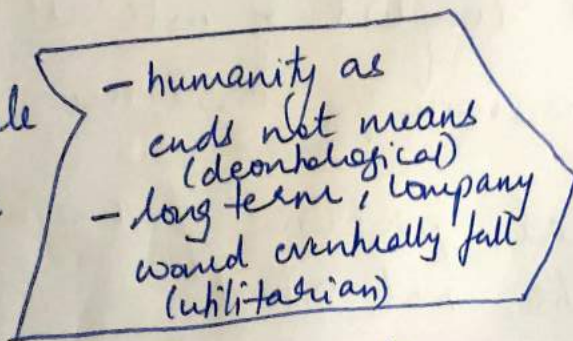 le
- humanity as
ends not means
(deontological)
- long term, company
would eventually fall
(utilitarian)